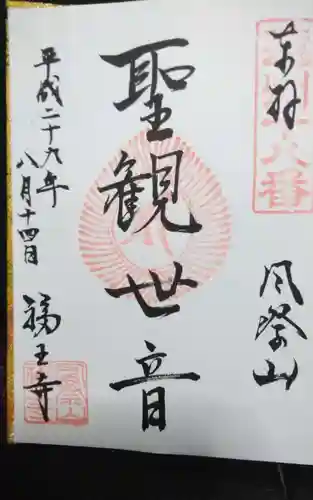 奉拝
風祭山
聖観世音
平成二十九年
八月十四日
福王寺